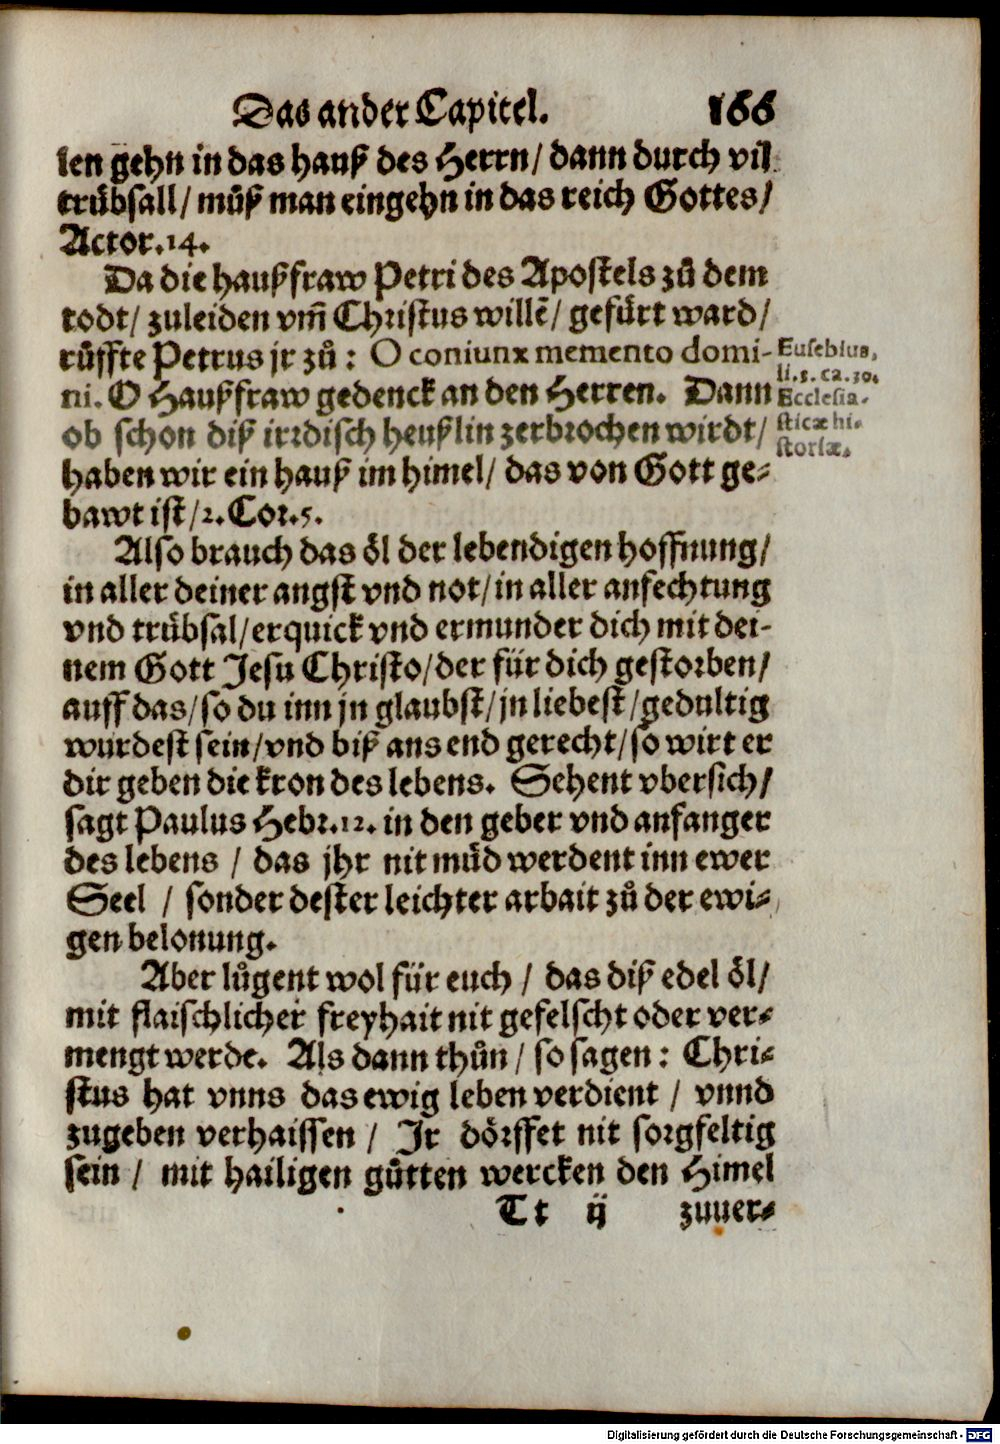 Das ander Capitel. 166
len gehn in das hauß des Herrn/ dann durch vil
trübsall/ müß man eingehn in das reich Gottes/
Actor.14.
Da die haußfraw Petri des Apostels zů dem
todt/ zuleiden vm̃ Christus willẽ/ gefürt ward/
růffte Petrus jr zů: O coniunx memento domi-
ni. O Haußfraw gedenck an den Herren. Dann
ob schon diß irrdisch heußlin zerbrochen wirdt/
haben wir ein hauß im himel/ das von Gott ge-
bawt ist/2.Cor.5.
Eusebius,
li.3. ca.30.
Ecclesia-
sticæ hi-
storiæ.
Also brauch das öl der lebendigen hoffnung/
in aller deiner angst vnd not/in aller anfechtung
vnd trübsal/erquick vnd ermunder dich mit dei-
nem Gott Jesu Christo/der für dich gestorben/
auff das/so du inn jn glaubst/jn liebest/gedultig
wurdest sein/vnd biß ans end gerecht/so wirt er
dir geben die kron des lebens. Sehent vbersich/
sagt Paulus Hebr.12. in den geber vnd anfanger
des lebens / das jhr nit müd werdent inn ewer
Seel / sonder dester leichter arbait zů der ewi-
gen belonung.
Aber lůgent wol für euch / das diß edel öl/
mit flaischlicher freyhait nit gefelscht oder ver-
mengt werde. Als dann thůn / so sagen: Chri-
stus hat vnns das ewig leben verdient / vnnd
zugeben verhaissen / Jr dörffet nit sorgfeltig
sein / mit hailigen gůtten wercken den Himel
Tt ij zuuer-
Digitalisierung gefördert durch die Deutsche Forschungsgemeinschaft - DFG